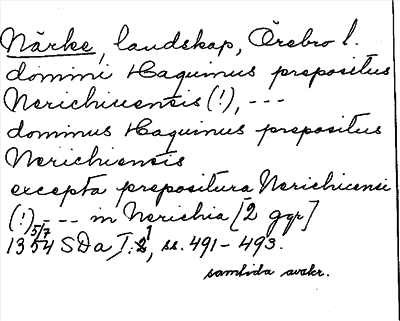 Närke, landskap, Örebro l.
domini Haquinus prepositus
Nerichiuensis (!), ---
dominus Haquinus prepositus
Nerichiensis
excepta prepositura Nerichicensi
(!), --- in Nerichia [2 ggr]
1354 5/7 SDa I:1, ss. 491-493.
samtida avskr.